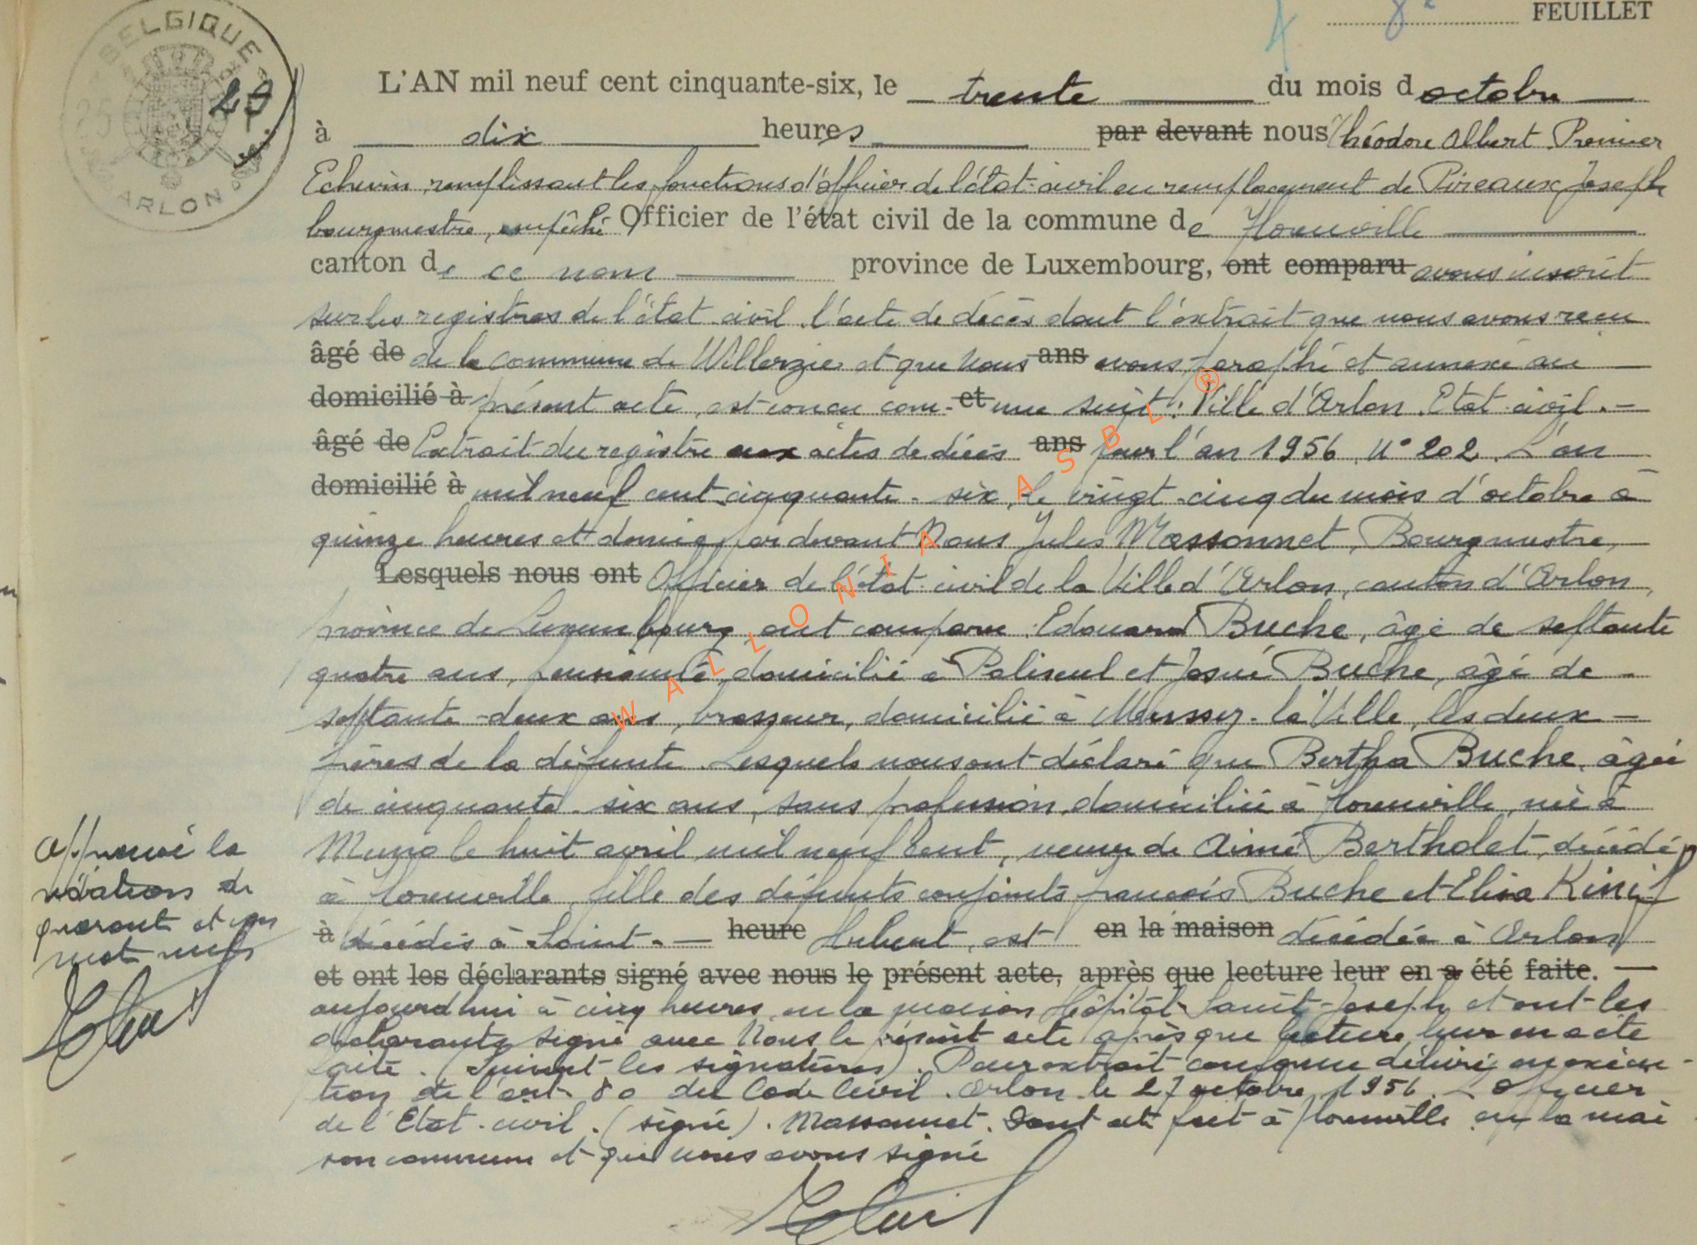 8e FEUILLET
BELGIQUE
ARLON
27
L'AN mil neuf cent cinquante-six, le trente du mois d octobre
à dix heures par devant nous Théodore Albert Premier
Echevin remplissant les fonctions d'officier de l'état-civil en remplacement de Pireaux Joseph
bourgmestre, empêché Officier de l'état civil de la commune de Florenville
canton de ce nom province de Luxembourg, ont comparu avons inscrit
sur les registres de l'état civil l'acte de décès dont l'extrait que nous avons reçu
âgé de de la commune de Willerzie et que nous ans avons paraphé et annexé au
domicilié à présent acte, est conçu com- et me suit : Ville d'Arlon. Etat-civil. -
âgé de Extrait du registre aux actes de décès ans pour l'an 1956. N° 202. L'an
domicilié à mil neuf cent cinquante-six, le vingt-cinq du mois d'octobre à
quinze heures et demie, par devant Nous Jules Massonnet, Bourgmestre,
Lesquels nous ont Officier de l'état-civil de la Ville d'Arlon, canton d'Arlon,
province de Luxembourg, ont comparu Edouard Buche, âgé de septante
quatre ans, pensionné, domicilié à Paliseul et Josué Buche, âgé de -
septante-deux ans, brasseur, domicilié à Mussy-la-Ville, les deux -
frères de la défunte. Lesquels nous ont déclaré que Bertha Buche, âgée
de cinquante-six ans, sans profession, domiciliée à Florenville, née à
Muno le huit avril mil neuf cent, veuve de Aimé Bertholet, décédé
à Florenville, fille des défunts conjoints François Buche et Elisa Kinif
à décédés à Saint. - heure Hubert, est en la maison décédée à Arlon
et ont les déclarants signé avec nous le présent acte, après que lecture leur en a été faite. -
aujourd'hui à cinq heures, en la maison Hôpital Saint-Joseph et ont les
déclarants signé avec Nous le présent acte après que lecture leur en a été
faite. (Suivent les signatures). Pour extrait conforme délivré en exécu-
tion de l'art. 80 du Code Civil. Arlon le 27 octobre 1956. L'Officier
de l'Etat-civil. (signé). Massonnet. Dont acte fait à Florenville en la mai
son commune et que nous avons signé
Approuvé la
de
quarante et un
mots nuls
WALLONIA ASBL ®